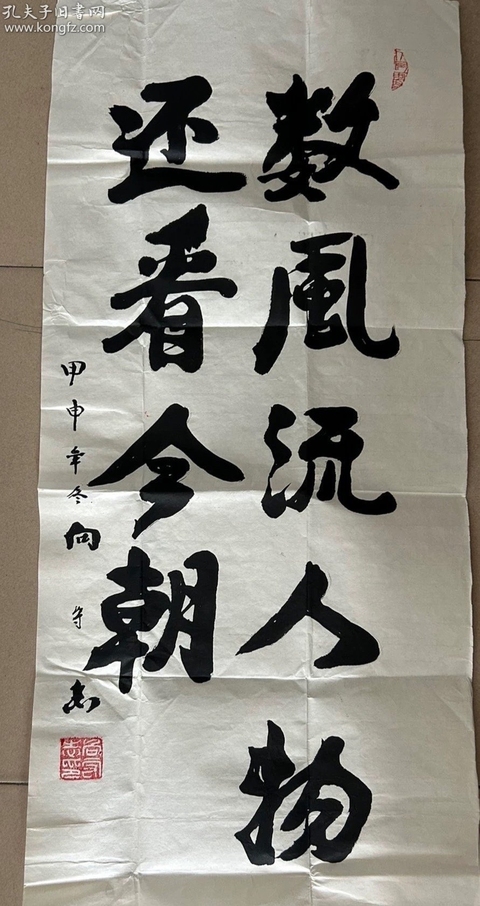 孔夫子旧书网
www.kongfz.com
数风流人物
还看今朝
甲申年冬向守志